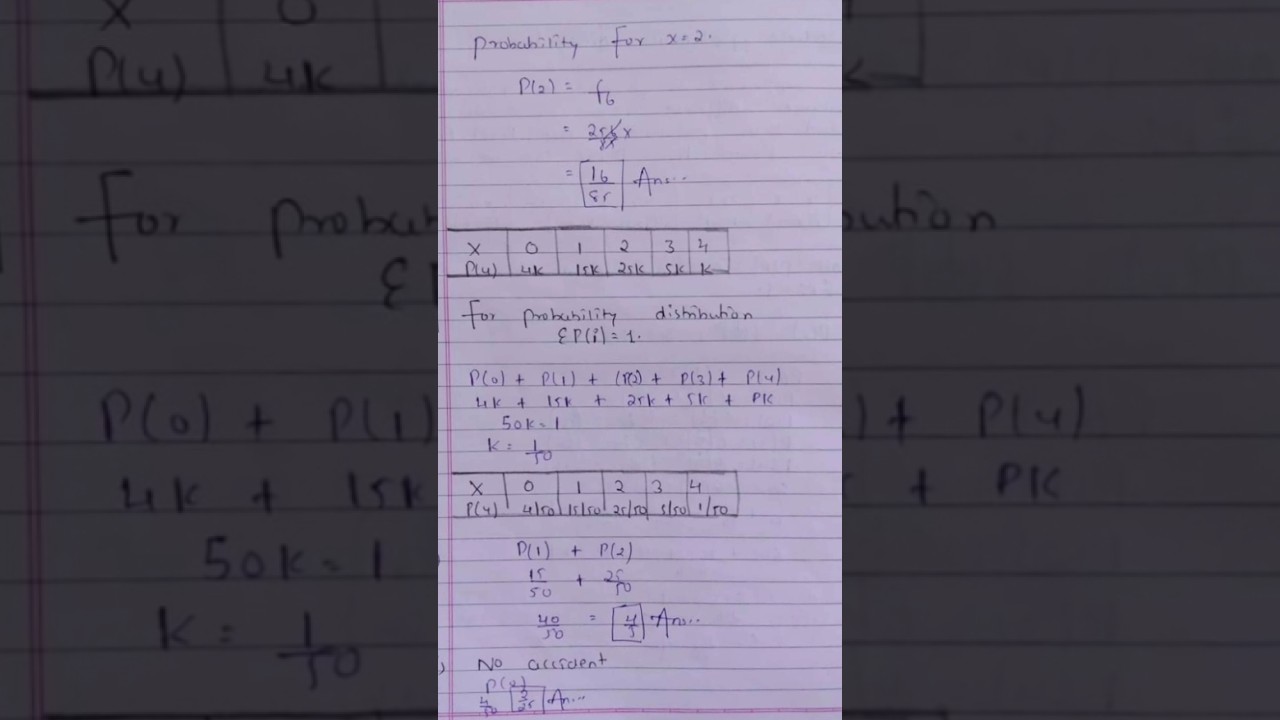 Probability for x=2.
P(2) = f6
= 25k x / 8x
= 16/85 Ans...
X 0 1 2 3 4
P(4) 4K 15K 25K 5K K
For probability distribution
ΣP(i)=1.
P(0) + P(1) + (P(2) + P(3) + P(4)
4K + 15K + 25K + 5K + PK
50K=1
K= 1/50
X 0 1 2 3 4
P(4) 4/50 15/50 25/50 5/50 1/50
P(1) + P(2)
15/50 + 25/50
40/50 = 4/5 Ans...
) No accident
4/50 2/25 Ans...